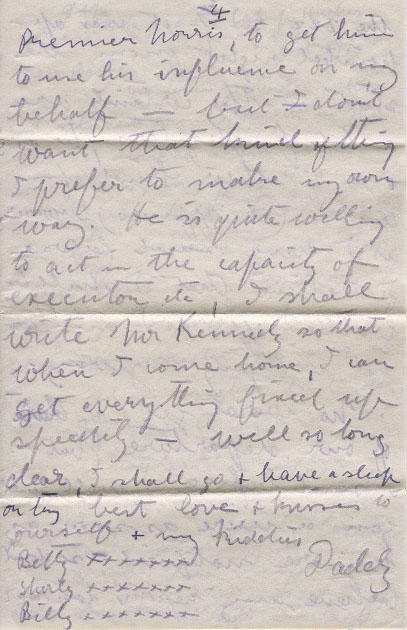 4
Premier Norris, to get him
to use his influence on my
behalf — but I don't
want that kind of thing
I prefer to make my own
way. He is quite willing
to act in the capacity of
executor etc, I shall
write Mr Kennedy so that
when I come home, I can
get everything fixed up
speedily — well so long
dear, I shall go + have a sleep
best love + kisses to
yourself + my kiddies
Daddy
Betty xxxxxxx
xxxxxxx
Billy xxxxxxx